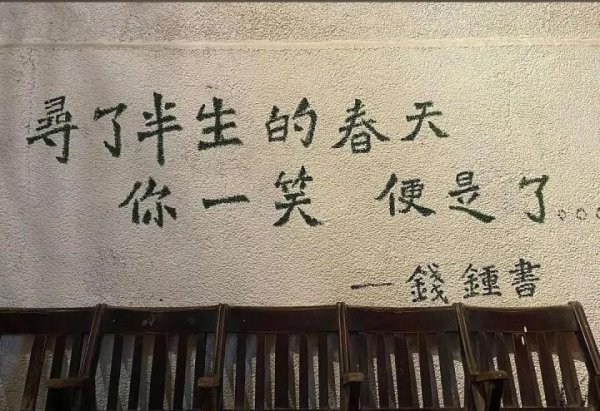 尋了半生的春天
你一笑 便是了。。。
一錢鍾書